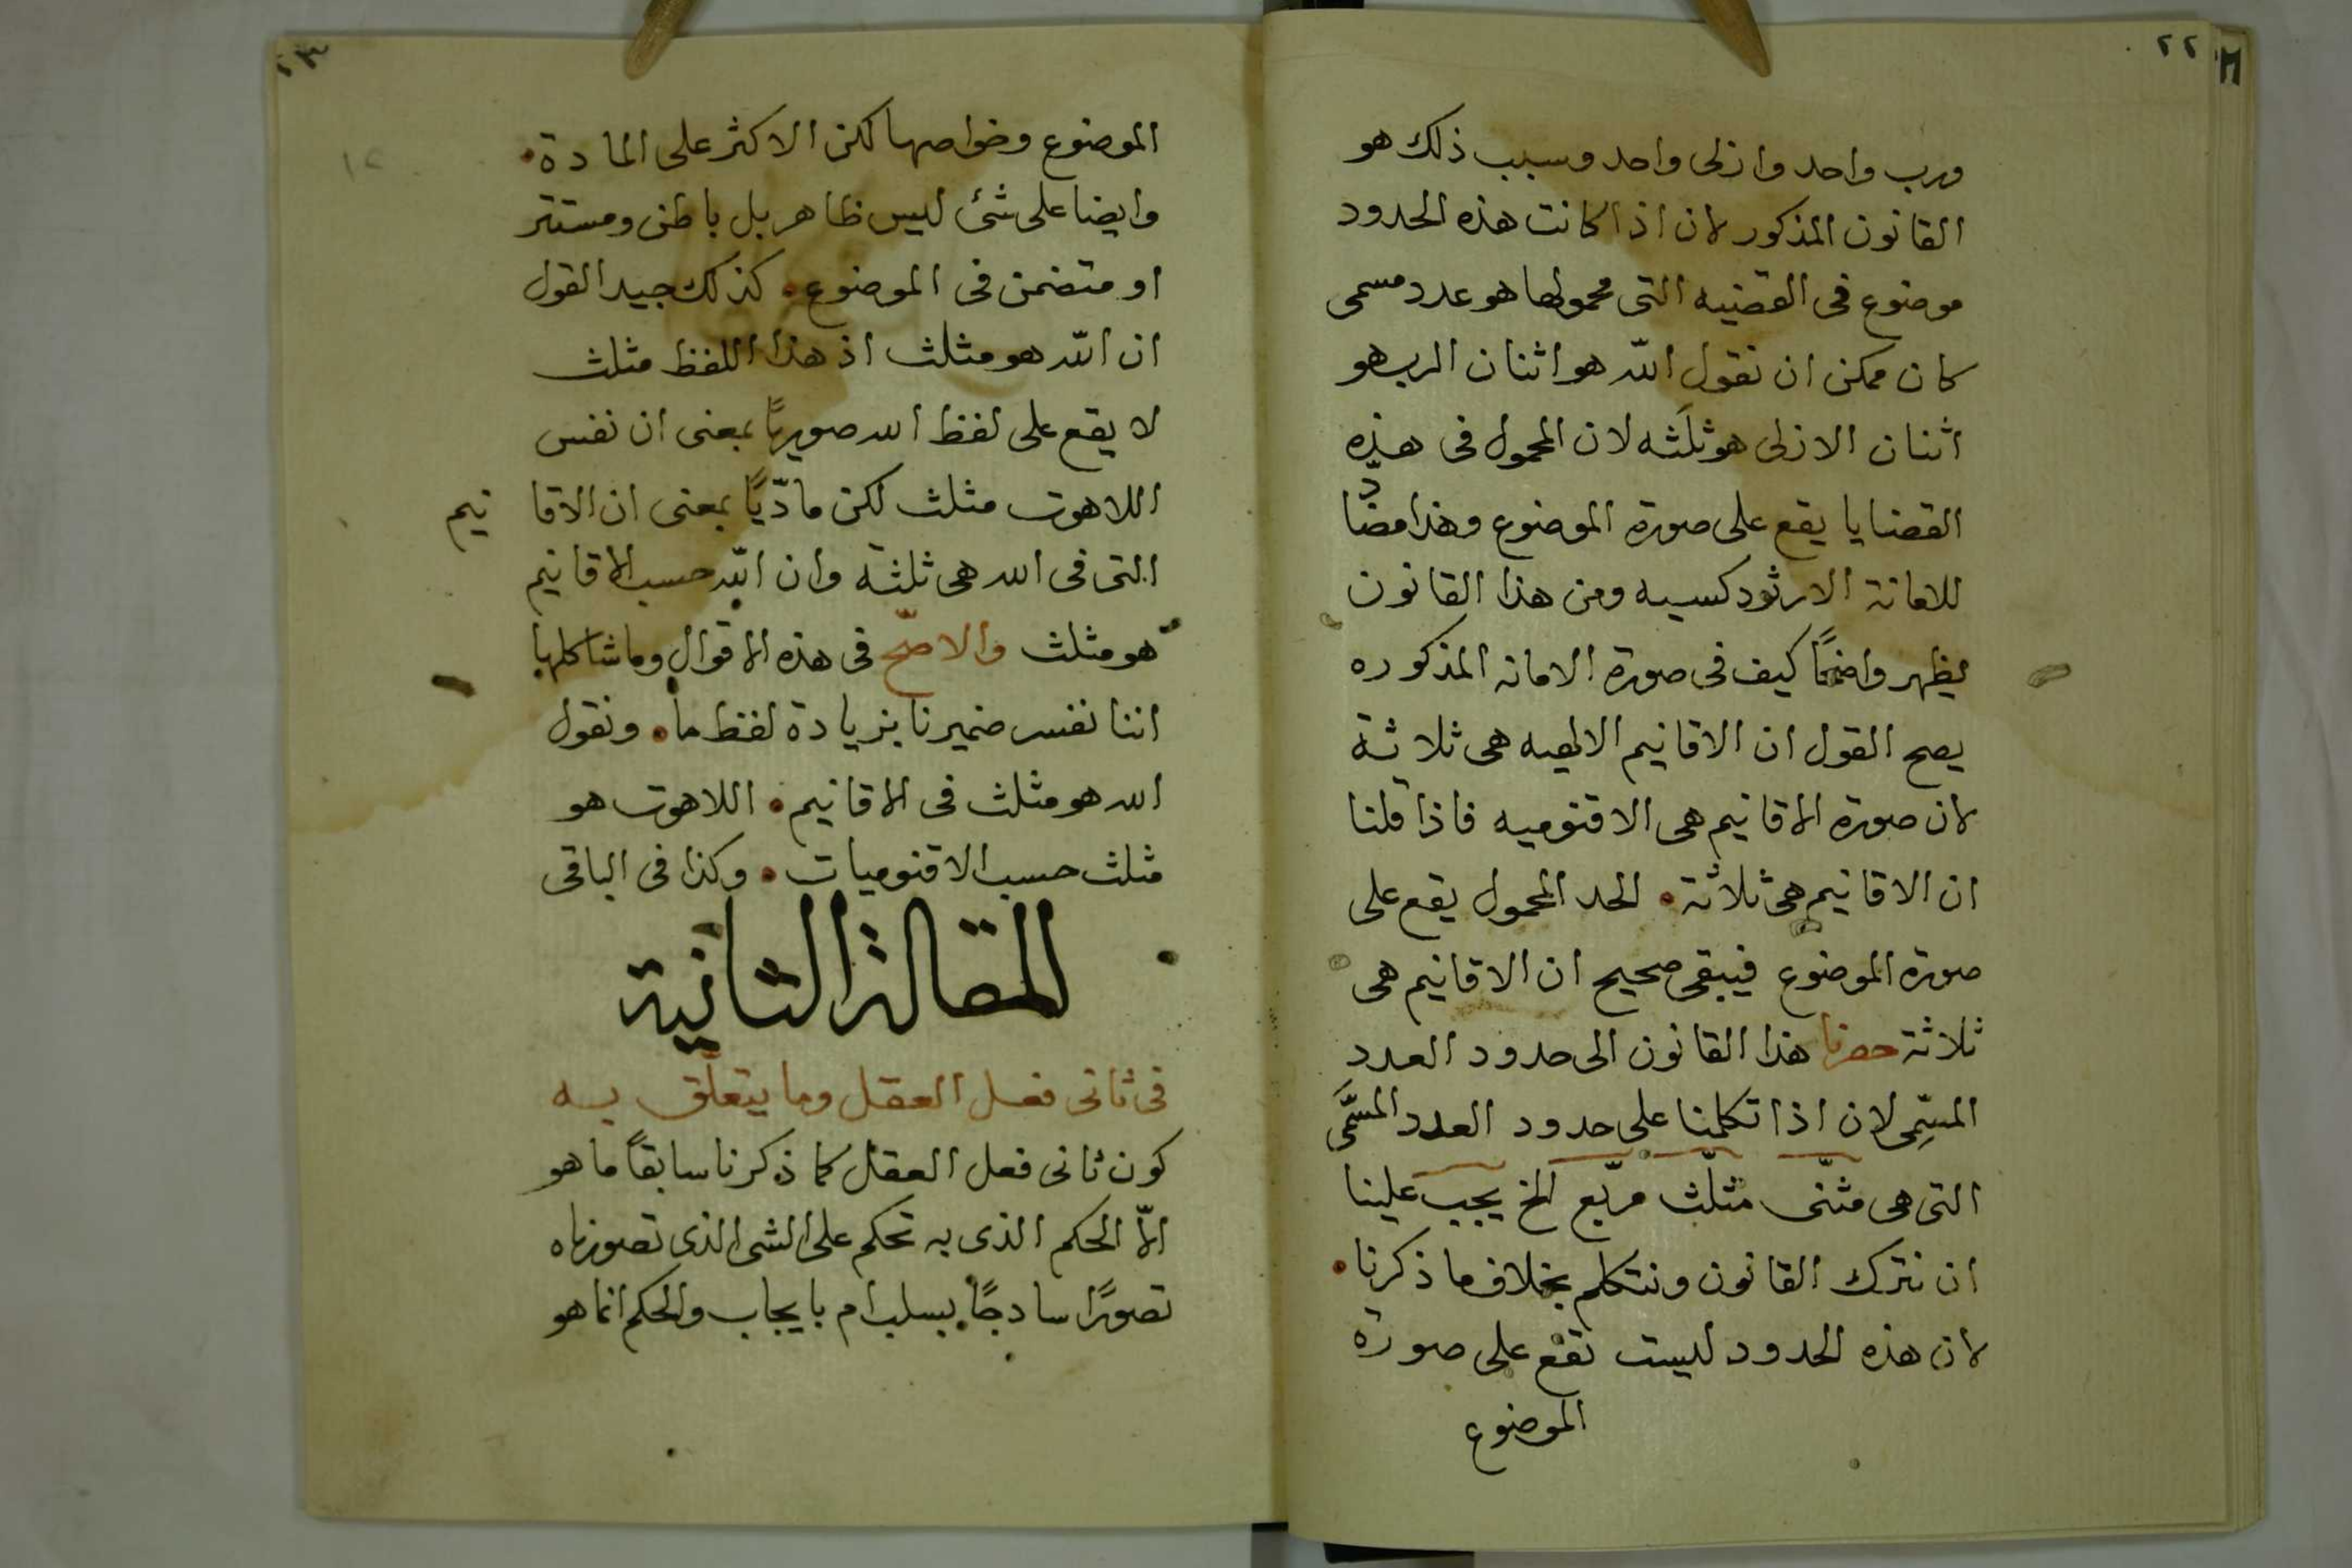 ٢٢
ورب واحد وازلى واحد وسبب ذلك هو
القانون المذكور لان اذا كانت هذه الحدود
موضوع فى القضيه التى محمولها هو عدد مسمى
كان ممكن ان نقول الله هو اثنان الرب هو
اثنان الازلى هو ثلثه لان المحمول فى هذه
القضايا يقع على صورة الموضوع وهذا مضادّ
للامانة الارثودكسيه ومن هذا القانون
يظهر واضحًا كيف فى صورة الامانه المذكوره
يصح القول ان الاقانيم الالهيه هى ثلاثة
لان صورة الاقانيم هى الاقنوميه فاذا قلنا
ان الاقانيم هى ثلاثة . الحد المحمول يقع على
صورة الموضوع فيبقى صحيح ان الاقانيم هى
ثلاثة حصرنا هذا القانون الى حدود العدد
المسّمى لان اذا تكلمنا على حدود العدد المسّمَى
التى هى مثنّى مثلّث مربّع الخ يجب علينا
ان نترك القانون ونتكلم بخلاف ما ذكرنا .
لان هذه الحدود ليست تقع على صورة
الموضوع
٢٣
الموضوع وخواصها لكن الاكثر على المادة .
وايضا على شئ ليس ظاهر بل باطن ومستتر
او متضمن فى الموضوع . كذلك جيد القول
ان الله هو مثلث اذ هذا اللفظ مثلث
لا يقع على لفظ الله صوريًا بمعنى ان نفس
اللاهوت مثلث لكن مادّيًا بمعنى ان الاقانيم
التى فى الله هى ثلثة وان الله حسب الاقانيم
هو مثلث والاصّح فى هذه الاقوال وما شاكلها
اننا نفسر ضميرنا بزيادة لفظ ما . ونقول
الله هو مثلث فى الاقانيم . اللاهوت هو
مثلث حسب الاقنوميات . وكذا فى الباقى
المقالة الثانية
فى ثانى فعل العقل وما يتعلّق به
كون ثانى فعل العقل كما ذكرنا سابقًا ما هو
الّا الحكم الذى به نحكم على الشى الذى تصورناه
تصورًا سادجًا بسلب ام بايجاب والحكم انما هو